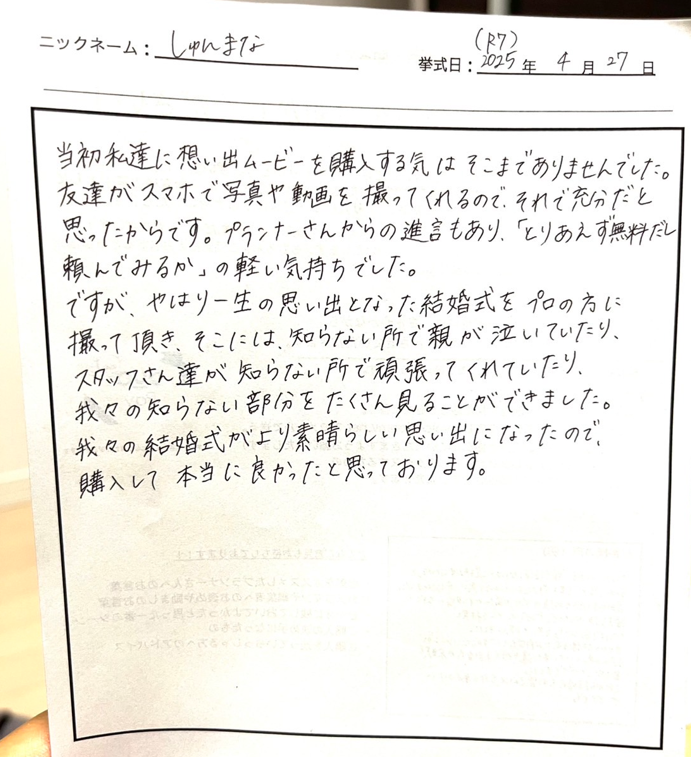 ニックネーム：しゅんまな
(R7)
挙式日：2025年 4月27日
当初私達に想い出ムービーを購入する気はそこまでありませんでした。
友達がスマホで写真や動画を撮ってくれるので、それで充分だと
思ったからです。プランナーさんからの進言もあり、「とりあえず無料だし
頼んでみるか」の軽い気持ちでした。
ですが、やはり一生の思い出となった結婚式をプロの方に
撮って頂き、そこには、知らない所で親が泣いていたり、
スタッフさん達が知らない所で頑張ってくれていたり、
我々の知らない部分をたくさん見ることができました。
我々の結婚式がより素晴らしい思い出になったので、
購入して本当に良かったと思っております。